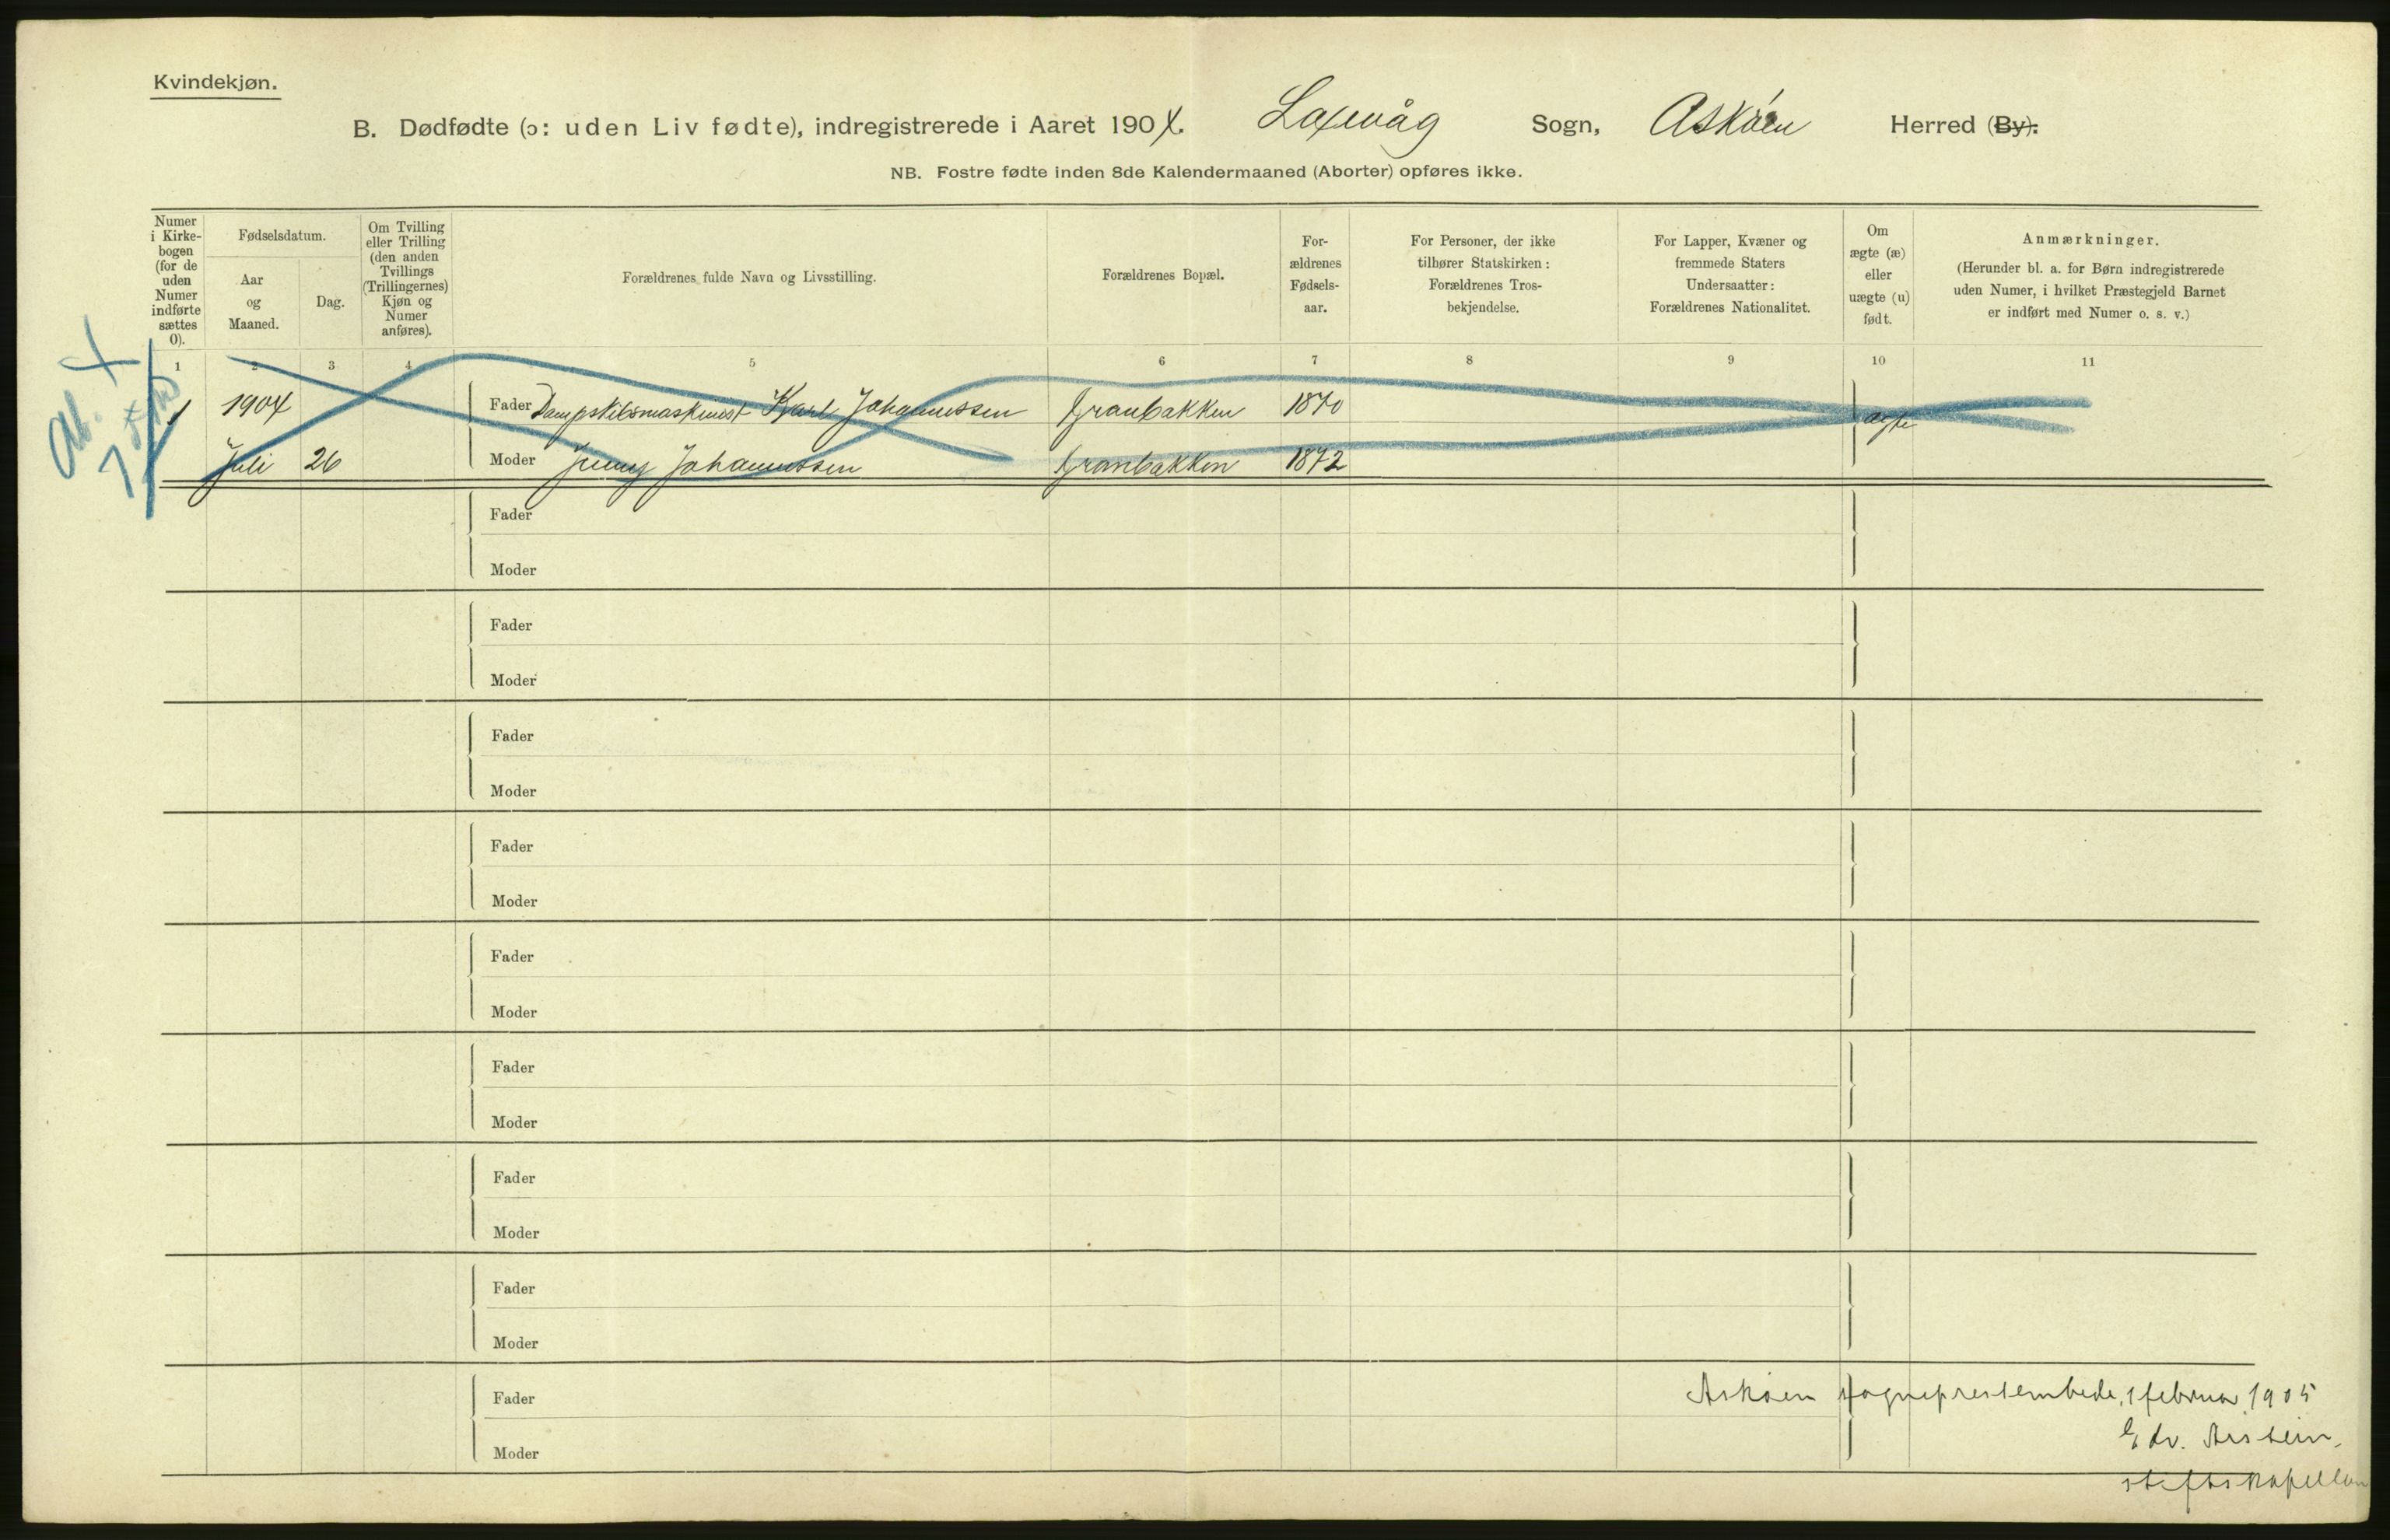 Kvindekjøn.
B. Dødfødte (ɔ: uden Liv fødte), indregistrerede i Aaret 1904. Laxevåg Sogn, Askøen Herred (By).
NB. Fostre fødte inden 8de Kalendermaaned (Aborter) opføres ikke.
Numer
i Kirke-
bogen
(for de
uden
Numer
indførte
sættes
0).
Fødselsdatum.
Aar
og
Maaned.
Dag.
Om Tvilling
eller Trilling
(den anden
Tvillings
(Trillingernes)
Kjøn og
Numer
anføres).
Forældrenes fulde Navn og Livsstilling.
Forældrenes Bopæl.
For-
ældrenes
Fødsels-
aar.
For Personer, der ikke
tilhører Statskirken:
Forældrenes Tros-
bekjendelse.
For Lapper, Kvæner og
fremmede Staters
Undersaatter:
Forældrenes Nationalitet.
Om
ægte (æ)
eller
uægte (u)
født.
Anmærkninger.
(Herunder bl. a. for Børn indregistrerede
uden Numer, i hvilket Præstegjeld Barnet
er indført med Numer o. s. v.)
1 2 3 4 5 6 7 8 9 10 11
1 1904 Fader Dampskibsmaskinist Karl Johannessen Granbakken 1870 ægte
Juli 26 Moder Jenny Johannessen Granbakken 1872
Fader
Moder
Fader
Moder
Fader
Moder
Fader
Moder
Fader
Moder
Fader
Moder
Fader
Moder
Fader
Moder
Fader Askøen sogneprestembede, 1 februar 1905
Edv.
Moder
stiftskapellan